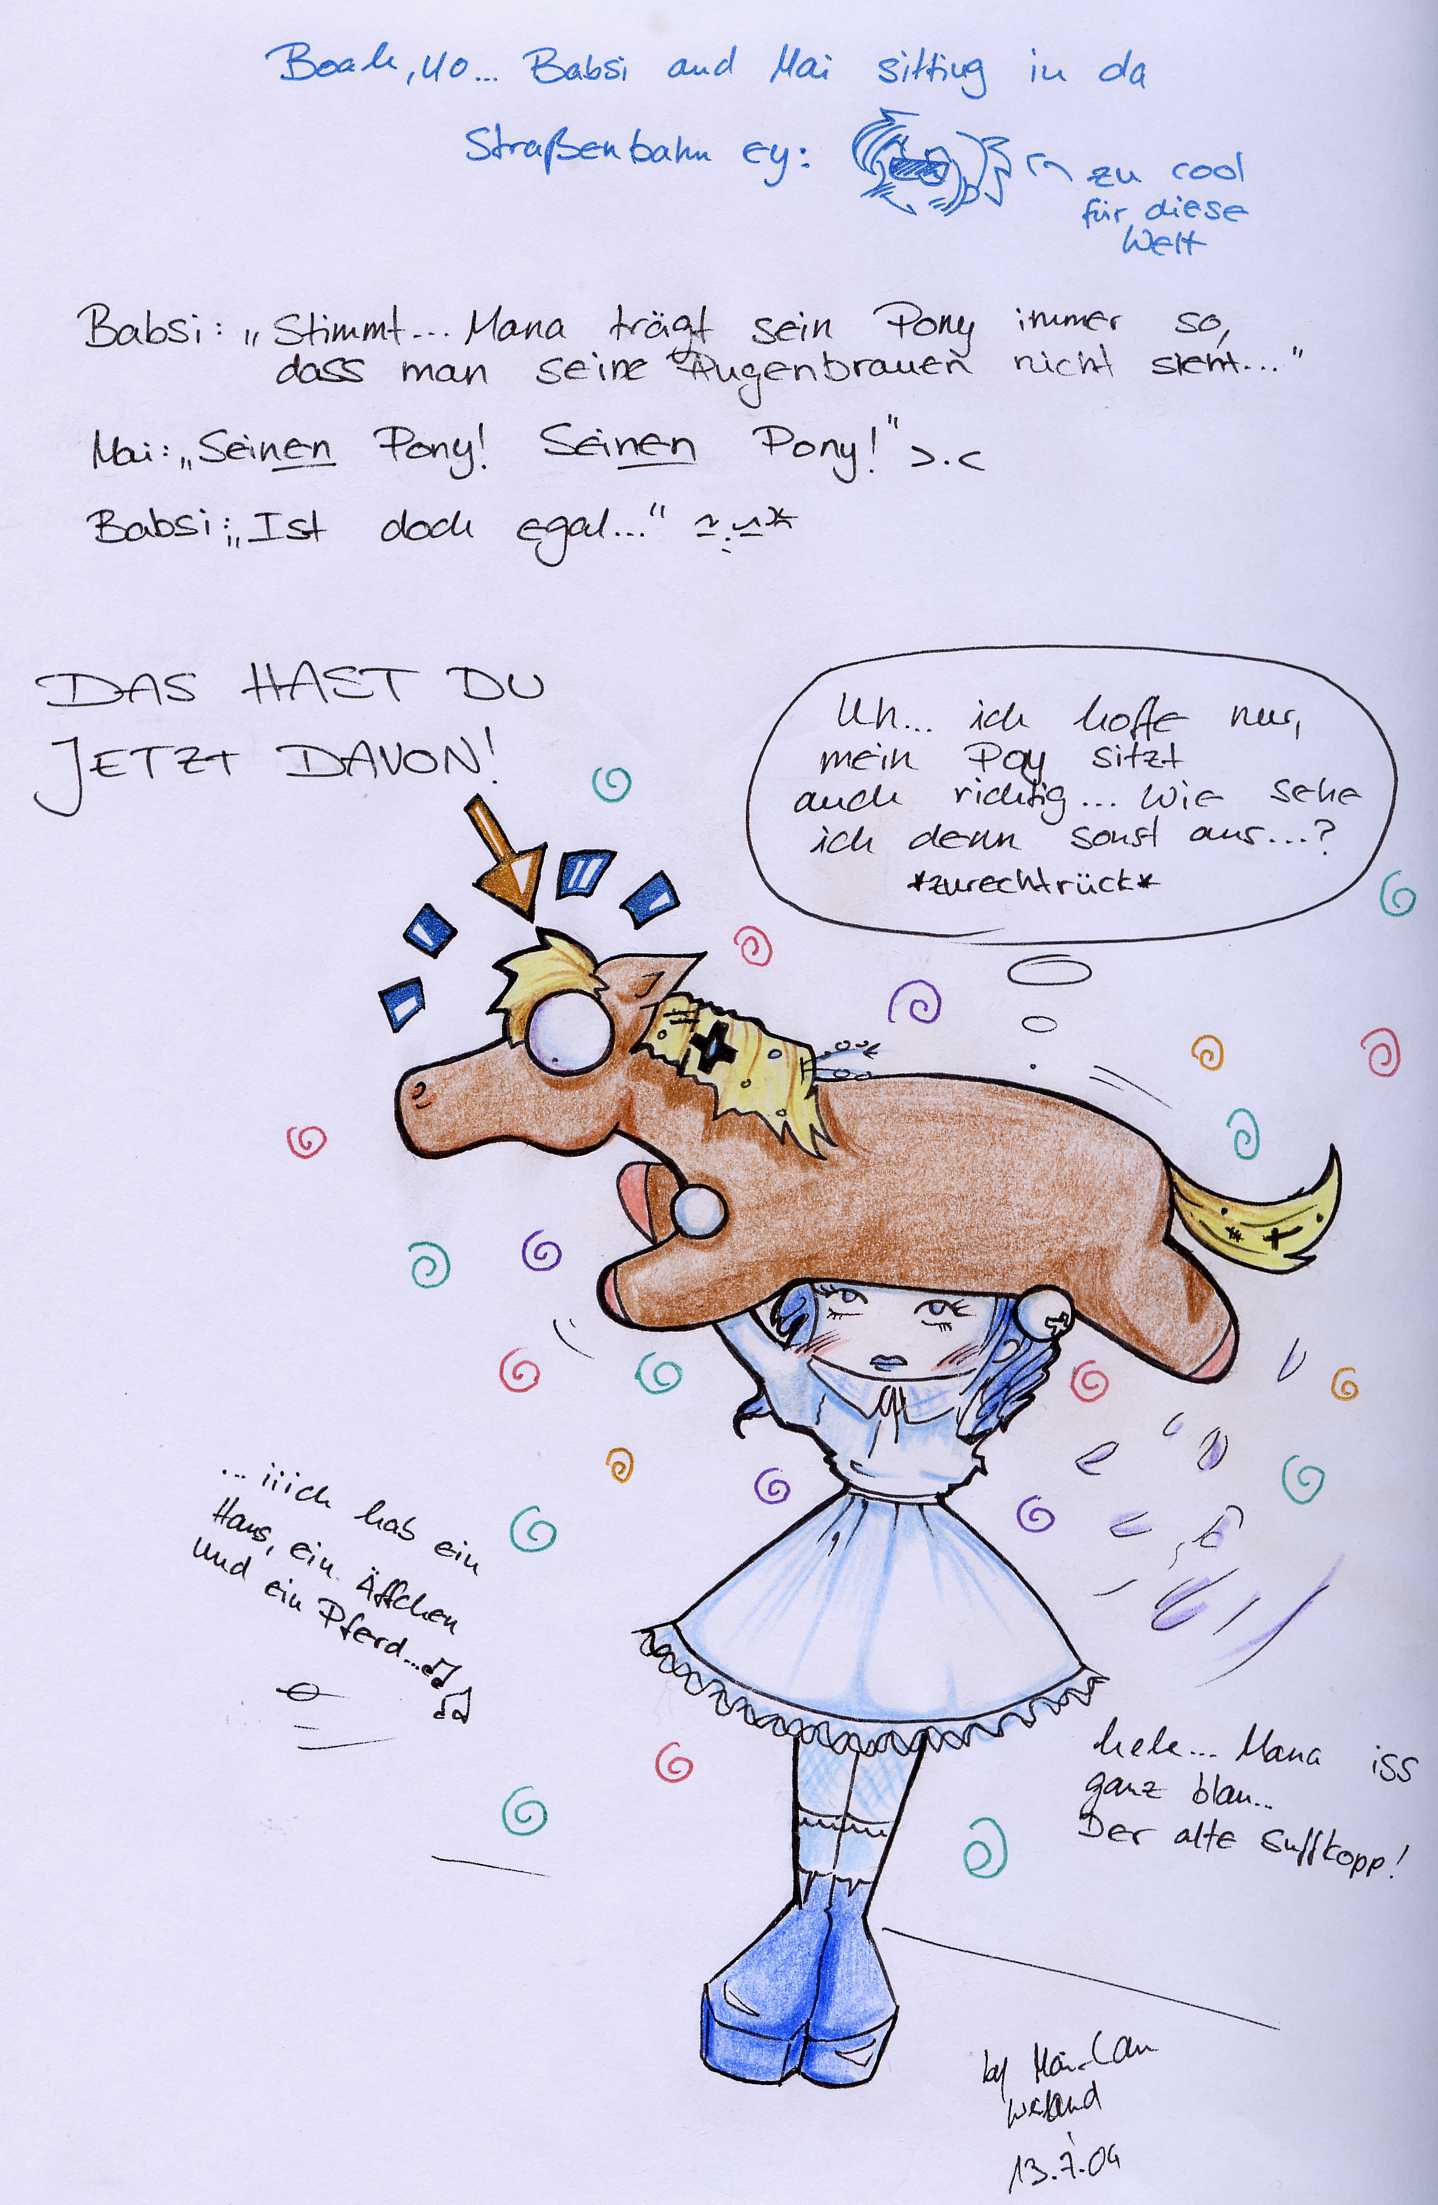 Boah, yo... Babsi and Mai sitting in da
Straßenbahn ey:
zu cool
für diese
Welt
Babsi: „Stimmt... Mana trägt sein Pony immer so,
dass man seine Augenbrauen nicht sieht..."
Mai: „Seinen Pony! Seinen Pony!" >.<
Babsi: „Ist doch egal..."
DAS HAST DU
JETZT DAVON!
Uh... ich hoffe nur,
mein Pony sitzt
auch richtig... Wie sehe
ich denn sonst aus...?
*zurechtrück*
...iiich hab ein
Haus, ein Äffchen
und ein Pferd...♫
♫
hehe... Mana iss
ganz blau...
Der alte Suffkopp!
by Mai-Lan
13.7.04